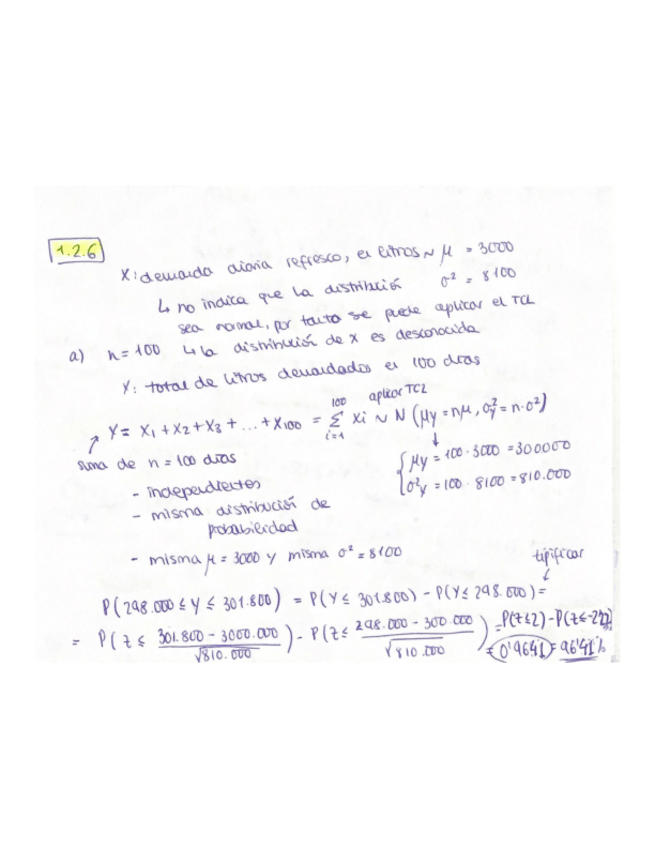 1.2.6
X: demanda diaria refresco, en litros ~ μ = 3000
↳ no indica que la distribución σ² = 8100
sea normal, por tanto se puede aplicar el TCL
a) n = 100 ↳ la distribución de x es desconocida
Y: total de litros demandados en 100 días
aplicar TCL
Y = X1 + X2 + X3 + ... + X100 = Σ_{i=1}^{100} Xi ~ N (μy = nμ, σ²y = n·σ²)
suma de n = 100 días
{ μy = 100·3000 = 300000
σ²y = 100·8100 = 810.000
- independientes
- misma distribución de
probabilidad
- misma μ = 3000 y misma σ² = 8100
tipificar
P(298.000 ≤ Y ≤ 301.800) = P(Y ≤ 301.800) - P(Y ≤ 298.000) =
= P(z ≤ (301.800 - 3000.000)/√810.000) - P(z ≤ (298.000 - 300.000)/√810.000) = P(z≤2) - P(z≤-2'22)
= 0'9641 = 96'41%